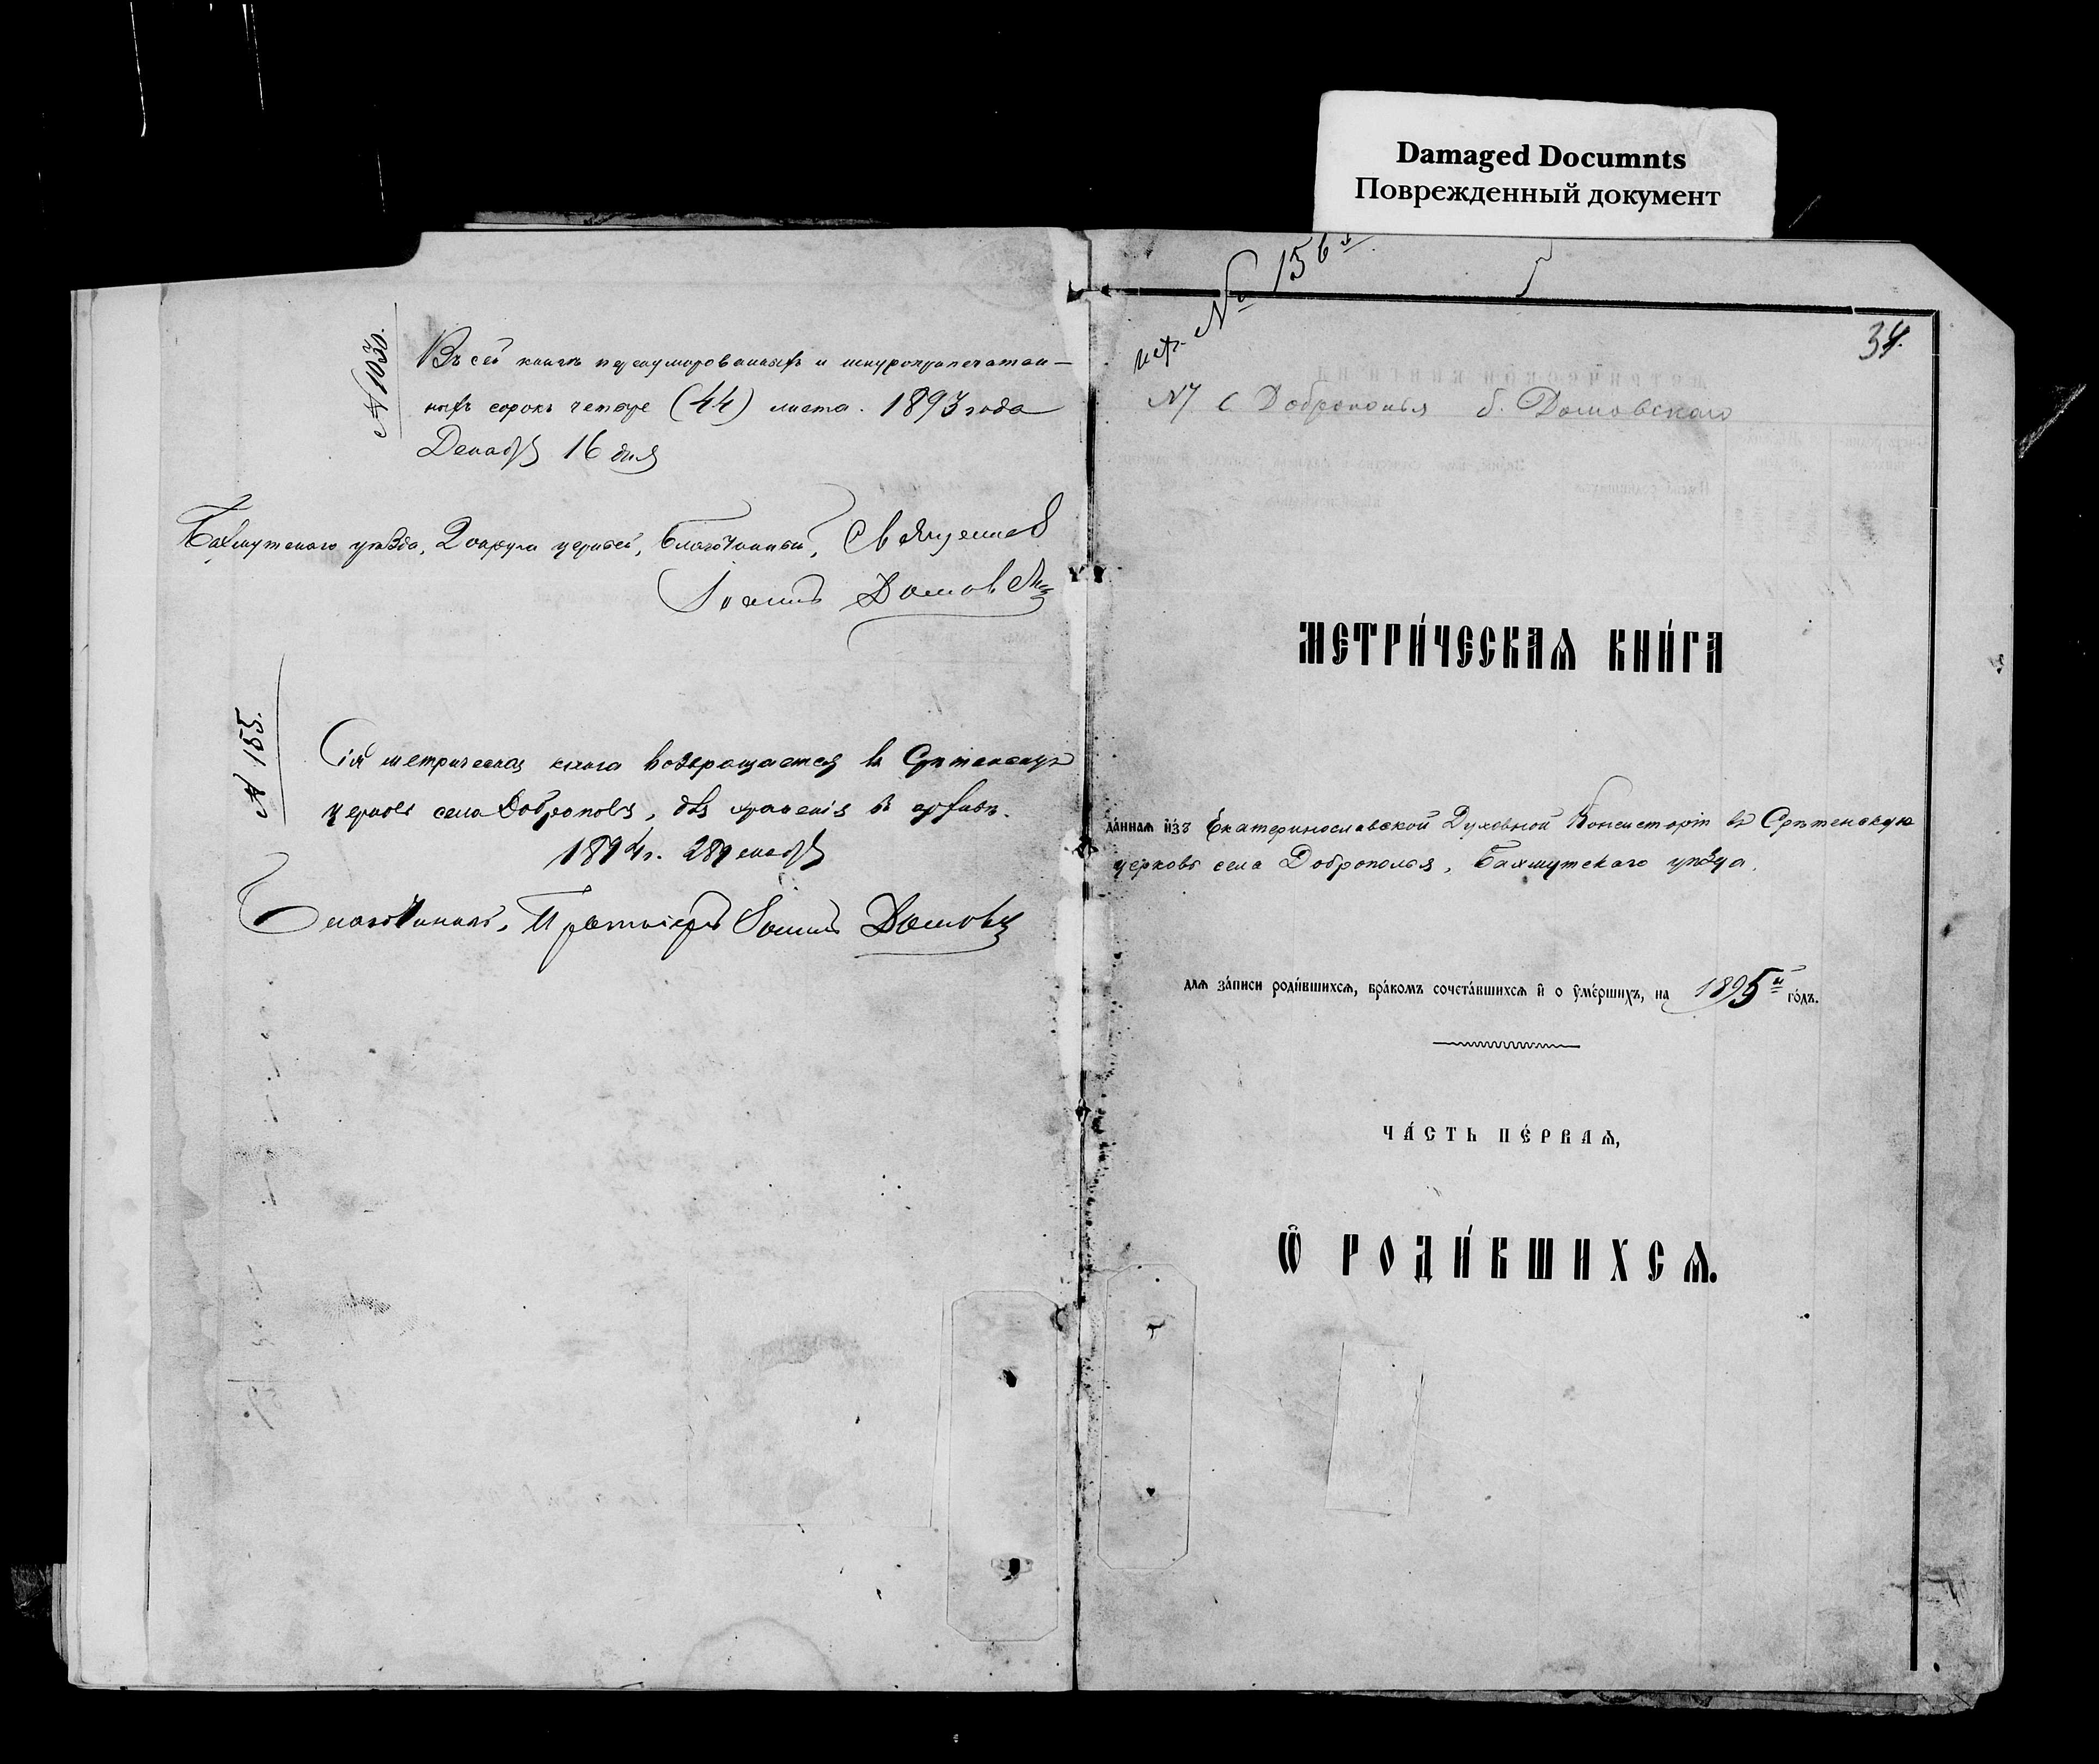 Damaged Documnts
Поврежденный документ
№ 1030.
Въ сей книгѣ пренумерованныхъ и шнуропрапечатан-
ныхъ сорокъ четыре (44) листа. 1893 года
Декабря 16 дня
Бахмутскаго уѣзда, 2 округа церквей, Благочинный, Священник
Іоаннъ Домовскій
№ 155.
Сія метрическая книга возвращается въ Срѣтенскую
церковь села Доброполья, для храненія въ архивъ.
1894 г. 28 декабря
Благочинный, Протоіерей Іоаннъ Домовскій
№ 156
34.
№7 с Доброполья б. Домовскаго
МЕТРИ́ЧЕСКАѦ КНИ́ГА
да́ннаѧ и҆зъ Екатеринославской Духовной Консисторіи въ Срѣтенскую
церковь села Доброполья, Бахмутскаго уѣзда.
длѧ за́писи роди́вшихсѧ, бра́комъ сочета́вшихсѧ и҆ о ᲂу҆ме́ршихъ, на 1895й го́дъ.
ЧА́СТЬ ПЕ́РВАѦ,
Ѽ РОДИ́ВШИХСѦ.